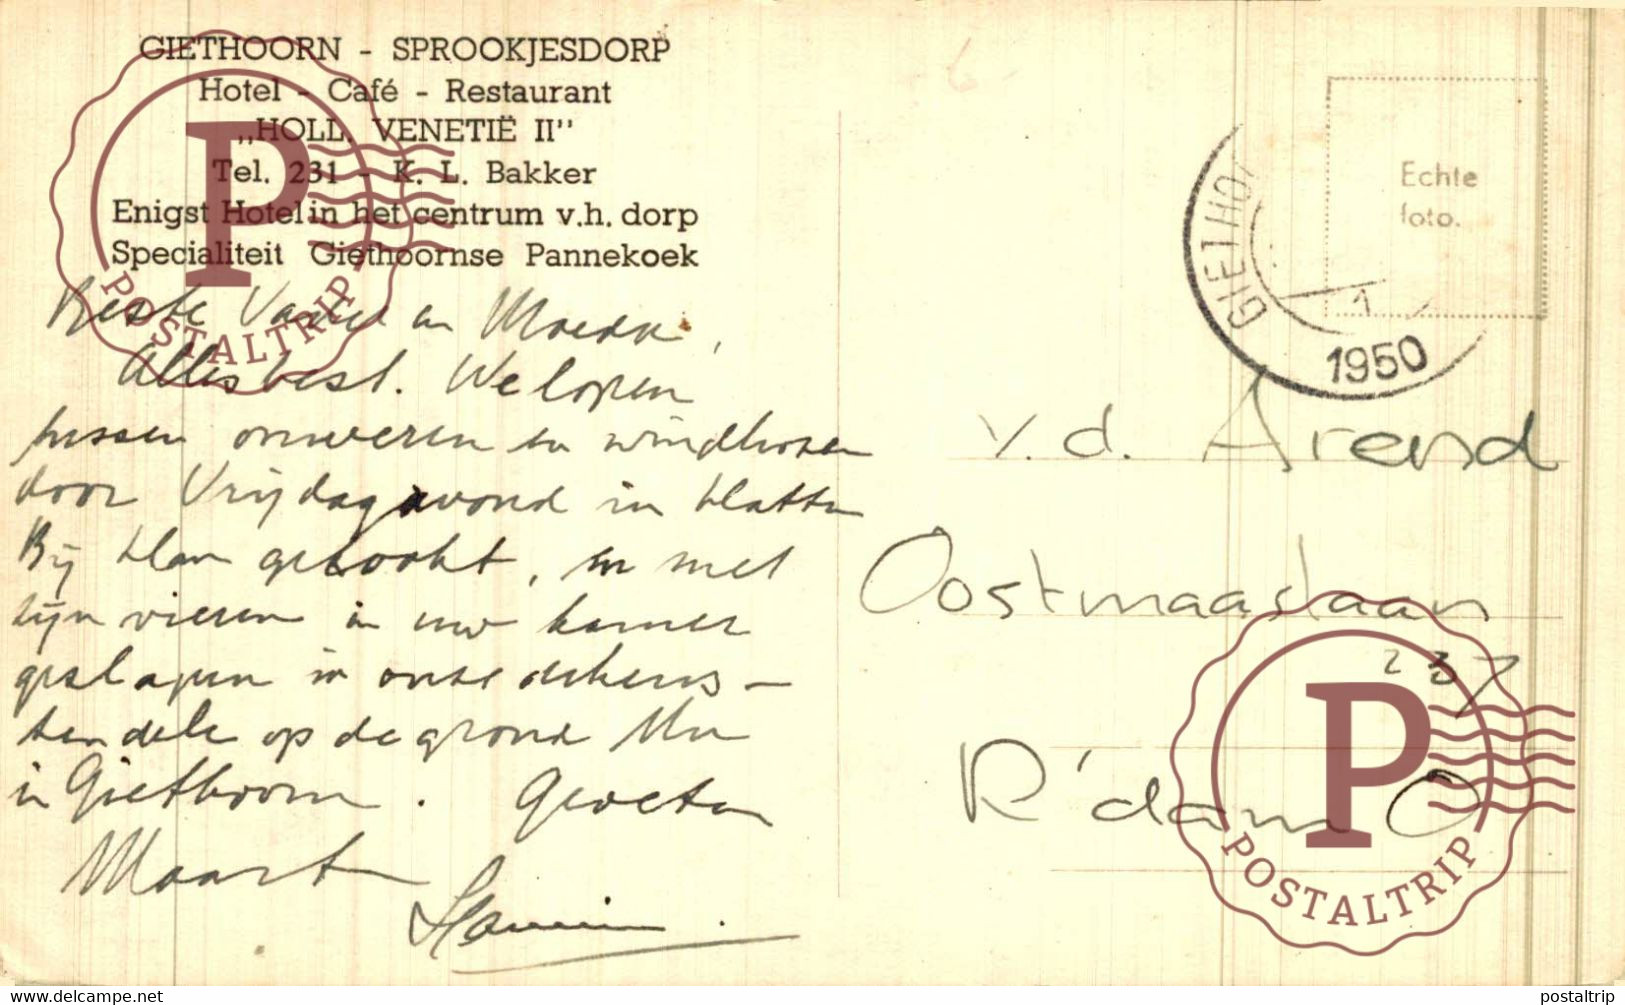 GIETHOORN - SPROOKJESDORP
Hotel - Café - Restaurant
„HOLL. VENETIË II"
Tel. 231 - K. L. Bakker
Enigst Hotel in het centrum v.h. dorp
Specialiteit Giethoornse Pannekoek
Beste Vader en Moeder,
Alles best. We lopen
tussen onweren en windhozen
door Vrijdagavond in
Bij gekookt, en met
zijn vieren in uw kamer
geslapen in onze dekens -
op de grond Nu
in Giethoorn. Groeten
Maarten
GIETHOORN
1
1950
Echte
foto.
v.d. Arend
Oostmaaslaan
237
R'dam O
POSTALTRIP
POSTALTRIP
www.delcampe.net
postaltrip